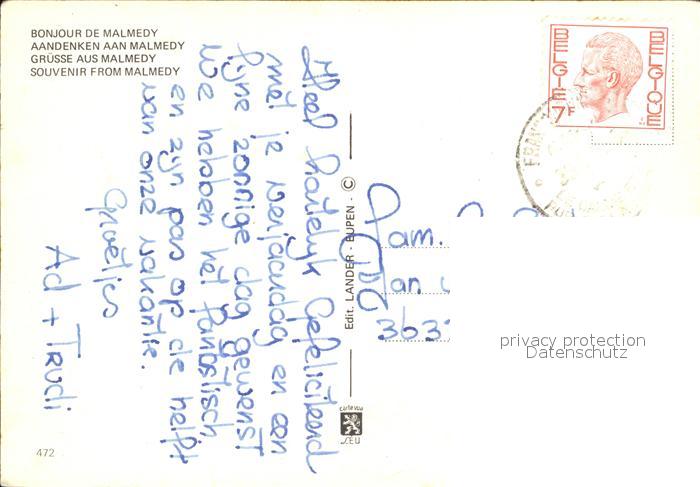 BONJOUR DE MALMEDY
AANDENKEN AAN MALMEDY
GRÜSSE AUS MALMEDY
SOUVENIR FROM MALMEDY
Heel hartelijk Gefeliciteerd
met je verjaardag en een
fijne zonnige dag gewenst
We hebben het fantastisch
en zijn pas op de helft
van onze vakantie.
Groetjes
Ad + Trudi
472
Edit. LANDER - EUPEN - ©
BELGIE BELGIQUE
7F
Fam.
363
privacy protection
Datenschutz